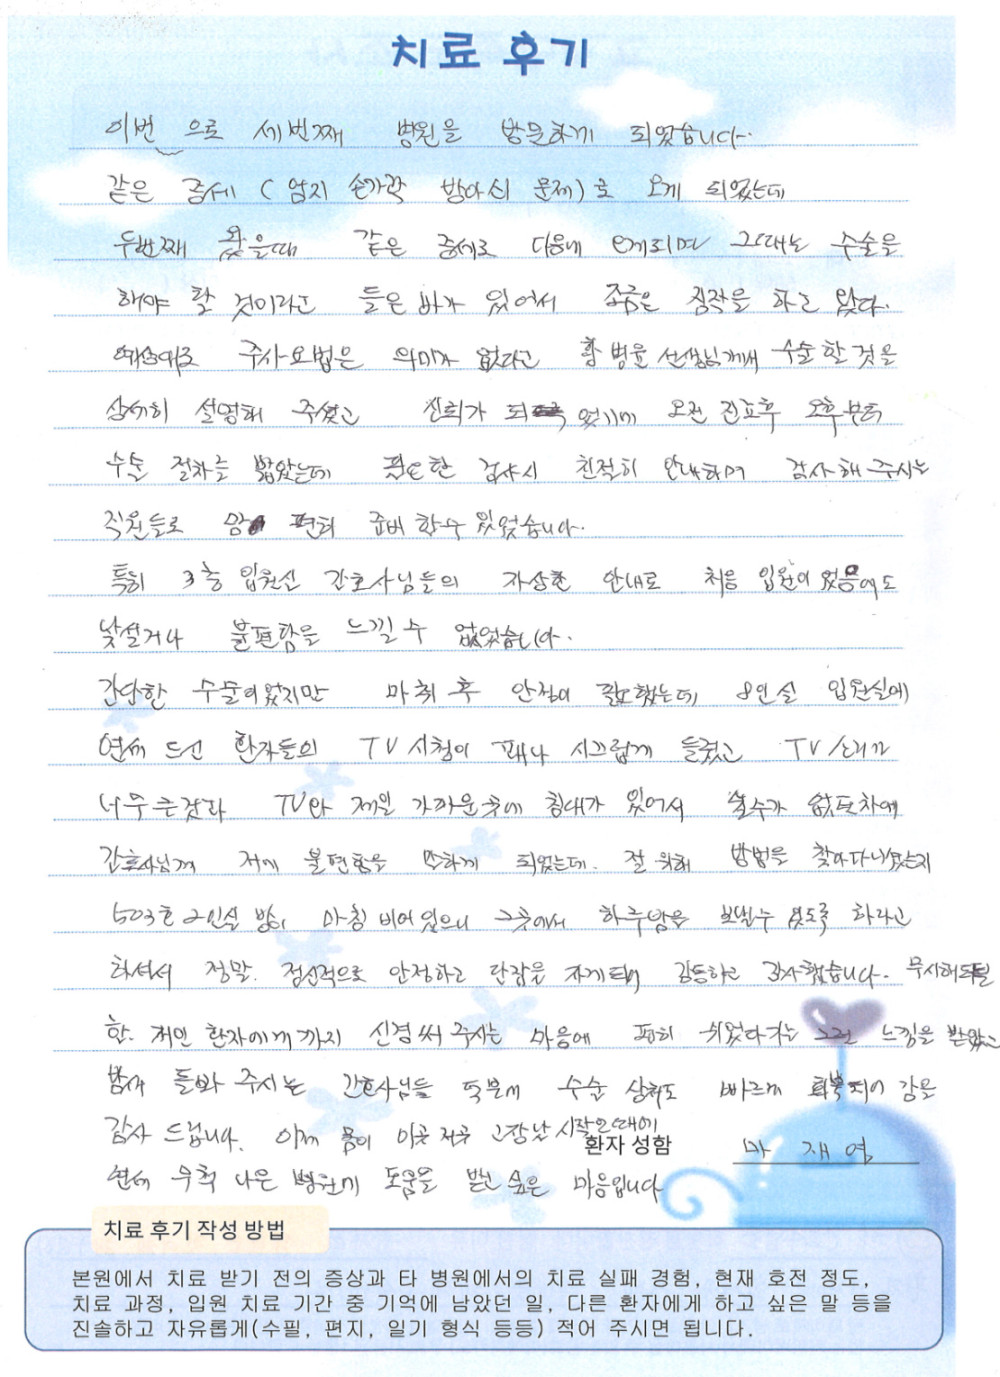 치료 후기
이번 으로 세번째 병원을 방문하게 되었습니다.
같은 증세 (엄지 손가락 방아쇠 문제)로 오게 되었는데
두번째 왔을때 같은 증세로 다음에 오게되면 그때는 수술을
해야 할 것이라고 들은 바가 있어서 조금은 짐작을 하고 왔다.
예상대로 주사요법은 의미가 없다고 황병율 선생님께서 수술할 것을
상세히 설명해 주셨고 신뢰가 되 었기에 오전 진료후 오후부터
수술 절차를 밟았는데 필요한 검사시 친절히 안내하며 감사해 주시는
직원들로 맘 편히 준비 할수 있었습니다.
특히 3층 입원실 간호사님들의 자상한 안내로 처음 입원이었음에도
낯설거나 불편함을 느낄 수 없었습니다.
간단한 수술이었지만 마취 후 안정이 필요했는데 8인실 입원실에
연세 드신 환자들의 TV 시청이 꽤나 시끄럽게 들렸고 TV 소리가
너무 큰것과 TV와 제일 가까운 곳에 침대가 있어서 쉴수가 없던차에
간호사님께 저에 불편함을 말하게 되었는데. 절 위해 방법을 찾아다니셨는지
503호 2인실 방이 마침 비어있으니 그곳에서 하루밤을 보낼수 있도록 하라고
하셔서 정말. 정신적으로 안정하고 단잠을 자게되어 감동하고 감사했습니다. 무시해도될
한. 개인 환자에게까지 신경써 주시는 마음에 편히 쉬었다가는 그런 느낌을 받았고
밤새 돌봐 주시는 간호사님들 덕분에 수술 상처도 빠르게 회복되어 감을
감사 드립니다. 이제 몸이 이곳 저곳 고장난 시작은때에
환자 성함 마 재 영
연세 우척 나은 병원에 도움을 받고 싶은 마음입니다
치료 후기 작성 방법
본원에서 치료 받기 전의 증상과 타 병원에서의 치료 실패 경험, 현재 호전 정도,
치료 과정, 입원 치료 기간 중 기억에 남았던 일, 다른 환자에게 하고 싶은 말 등을
진솔하고 자유롭게(수필, 편지, 일기 형식 등등) 적어 주시면 됩니다.